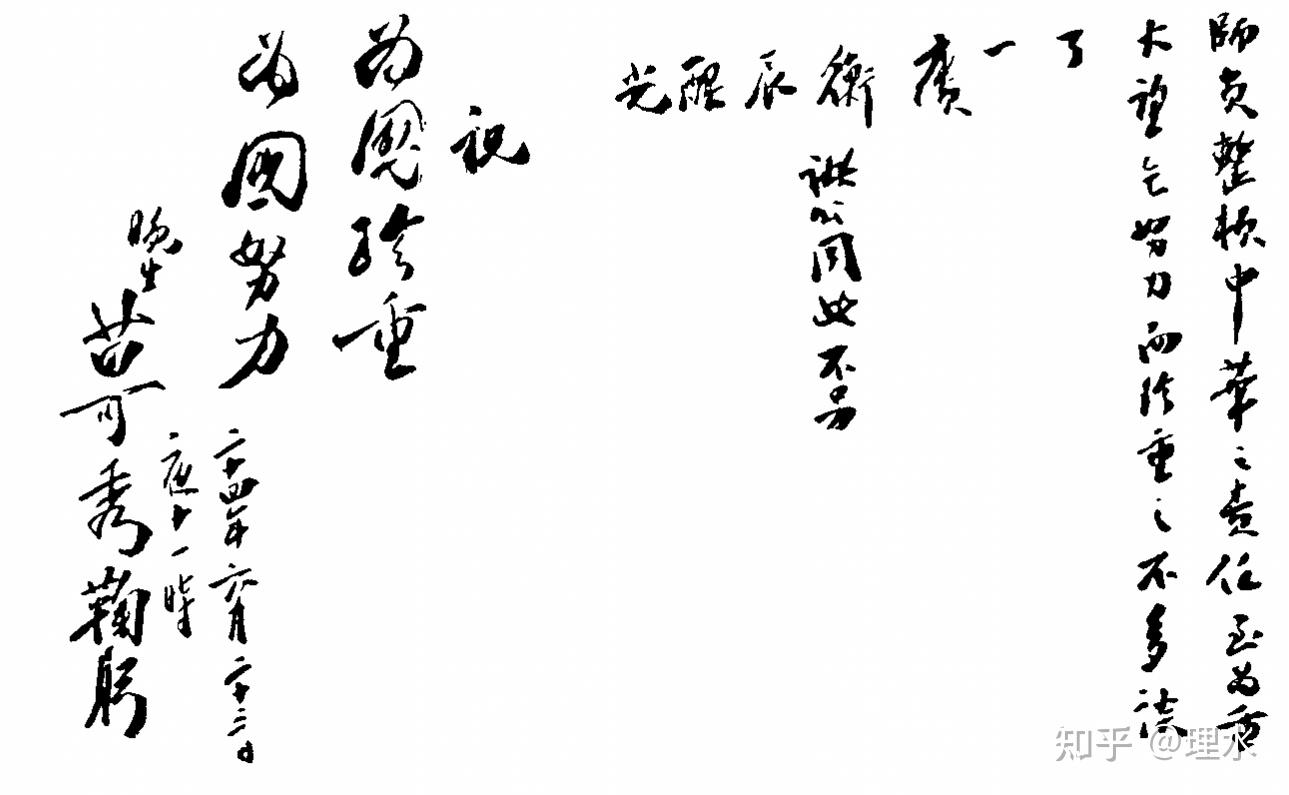 師負整頓中華之責任至為
大望之努力而珍重之不多
了
一
賡
衡
辰
醒
光
諸公同此不另
祝
為國珍重
為國努力
二十四年六月二十三日
夜十一時
晚生苗可秀鞠躬
知乎 @理水